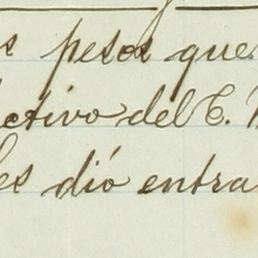 s pesos que
ctivo del C.
es dió entra